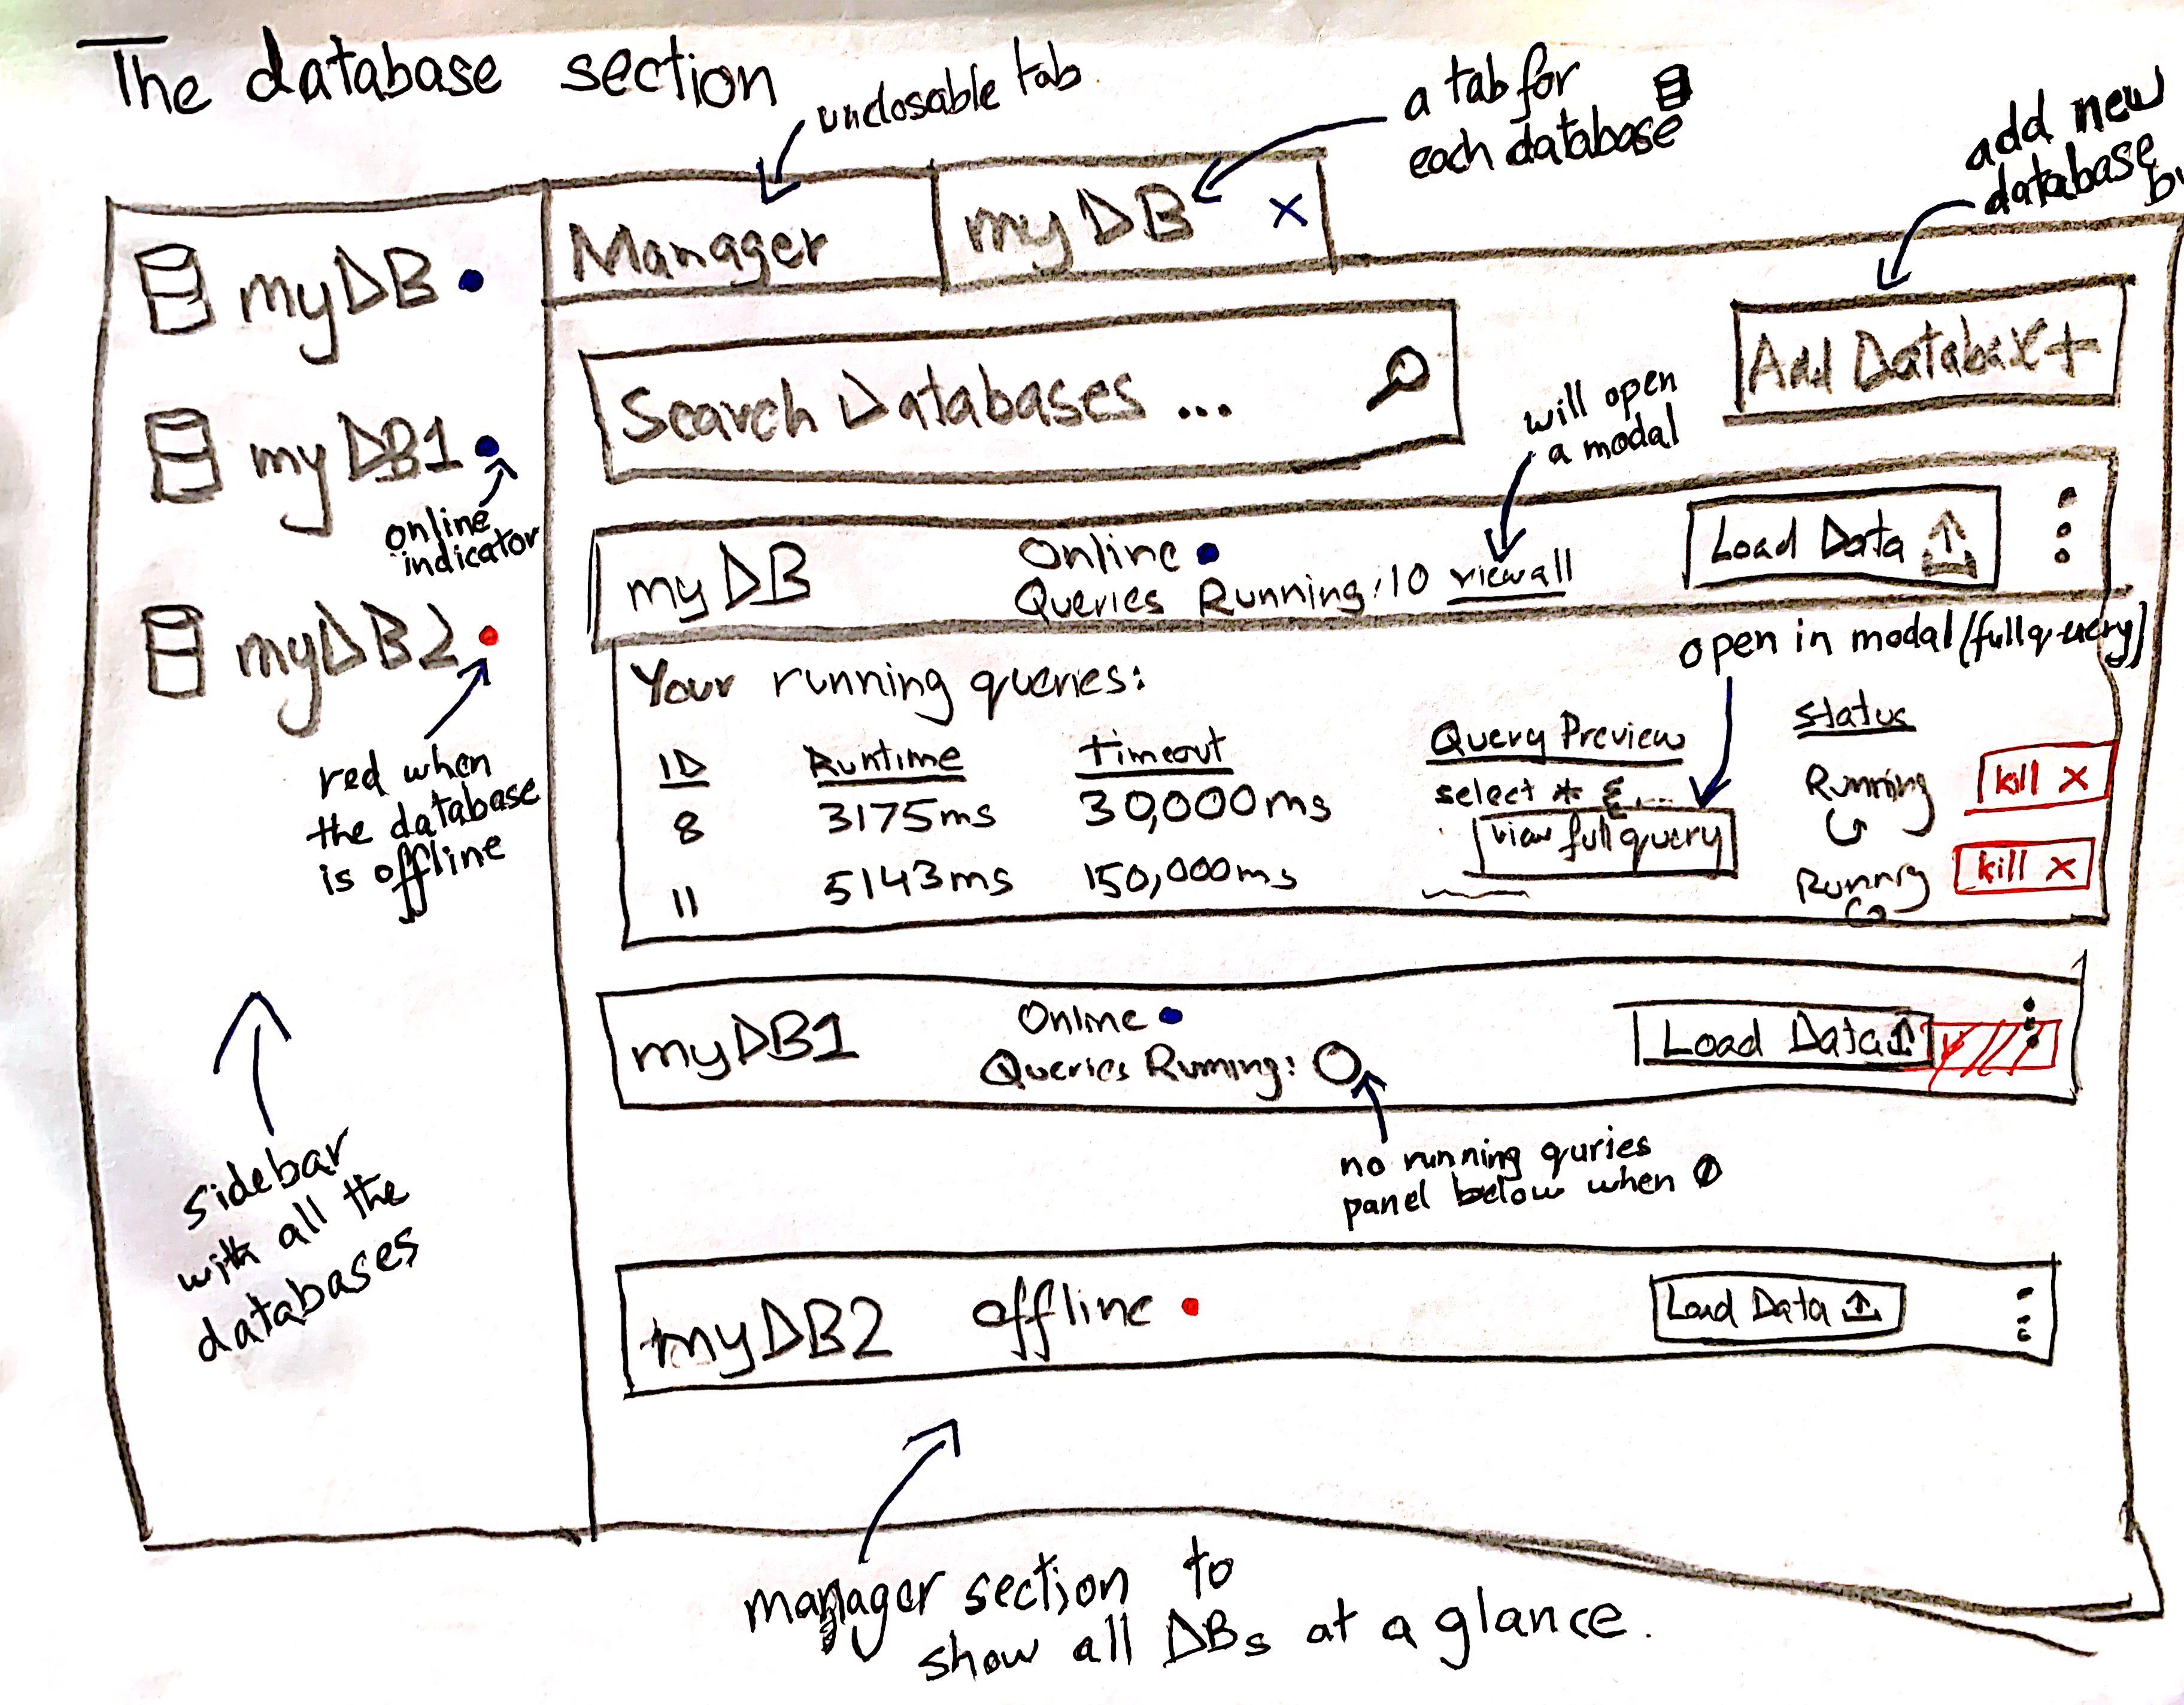 The database section
unclosable tab
a tab for
each database
add new
database
myDB
myDB1
online
indicator
myDB2
red when
the database
is offline
sidebar
with all the
databases
Manager
myDB X
Search Databases ...
Add Database +
will open
a modal
myDB
Online
Queries Running: 10 view all
Load Data
open in modal (full query)
Your running queries:
ID Runtime Timeout Query Preview Status
8 3175ms 30,000ms select * Running kill X
view full query
11 5143ms 150,000ms Runnig kill X
myDB1
Online
Queries Running: 0
Load Data
no running quries
panel below when 0
myDB2 offline Load Data
manager section to
show all DBs at a glance.